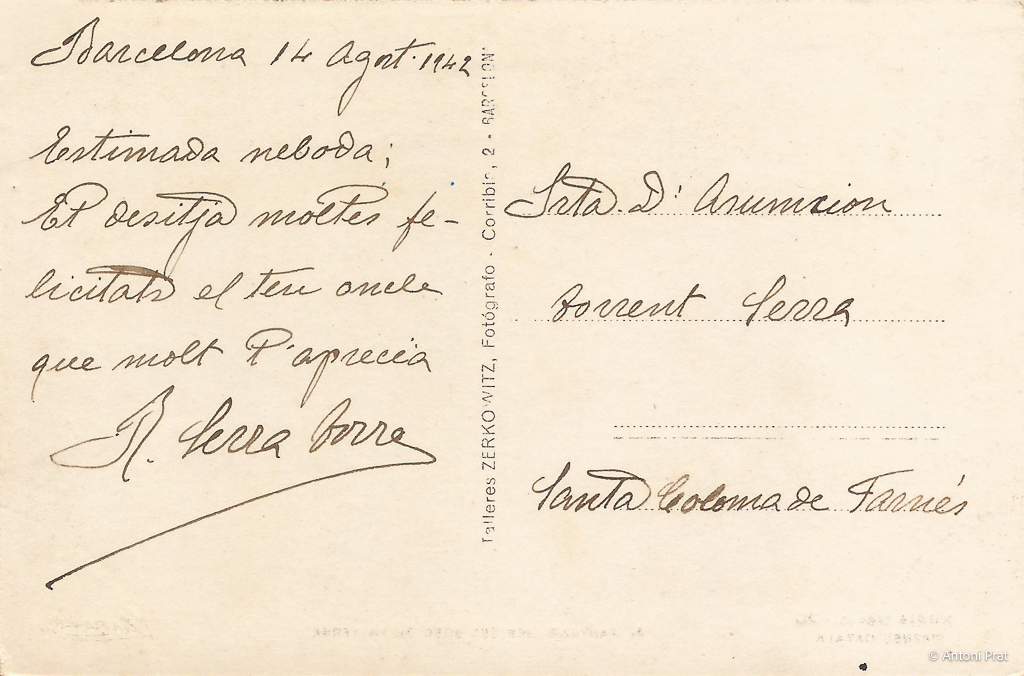 Barcelona 14 Agost. 1942
Estimada neboda;
Et desitja moltes fe-
licitats el teu oncle
que molt t'aprecia
R. Serra Torra
Talleres ZERKOWITZ, Fotógrafo - Corribia, 2 - BARCELONA
Srta. D' Asumcion
Torrent Serra
Santa Coloma de Farnés
© Antoni Prat